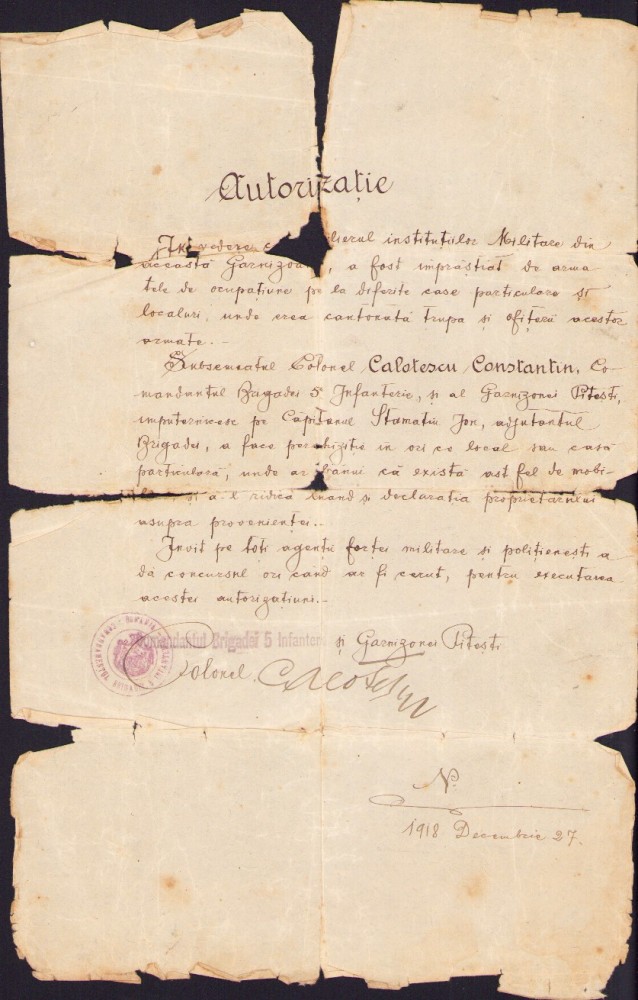 Autorizație
In vedere c lierul institutiilor Militare din
această Garnizoa , a fost împrăștiat de arma
tele de ocupațiune pe la diferite case particulare și
localuri, unde erea cantonată trupa și ofițerii acestor
armate. -
Subsemnatul Colonel Calotescu Constantin, Co-
mandantul Brigadei 5 Infanterie, și al Garnizonei Pitești,
imputernicesc pe Căpitanul Stamatiu Ion, adjutantul
Brigadei, a face perchizitie in ori ce local sau casă
particulară, unde ar bănui că există ast fel de mobi-
și a-l ridica luand și declaratia proprietarului
asupra provenientei..
Invit pe toti agentii fortei militare și polițienesti a
da concursul ori cand ar fi cerut, pentru executarea
acestei autorizatiuni.-
Comandantul Brigadei 5 Infanter și Garnizonei Pitesti
Colonel. Calotescu
No.
1918 Decembrie 27.